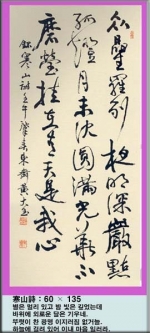 衆星羅列夜明深巖點
孤燈月未沈圓滿光華不
磨瑩掛在青天是我心
錄寒山詩壬午
寒山詩 : 60 × 135
별은 멀리 있고 밤 빛은 깊었는데
바위에 외로운 달은 기우네.
뚜렷이 찬 광명 이지러짐 없거늘.
하늘에 걸려 있어 이내 마음 일러라.